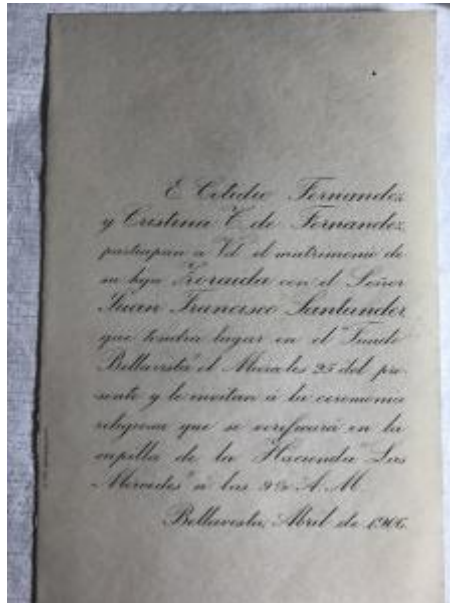 E. Fernandez
y Cristina C. de Fernandez
participan a Vd. el matrimonio de
su hija Zoraida con el Señor
Juan Francisco Santander,
que tendrá lugar en el "Fundo
Bellavista" el Miércoles 25 del pre-
sente y le invitan á la ceremonia
religiosa que se verificará en la
capilla de la Hacienda "Las
Mercedes" á las 9½ A. M.
Bellavista, Abril de 1906.